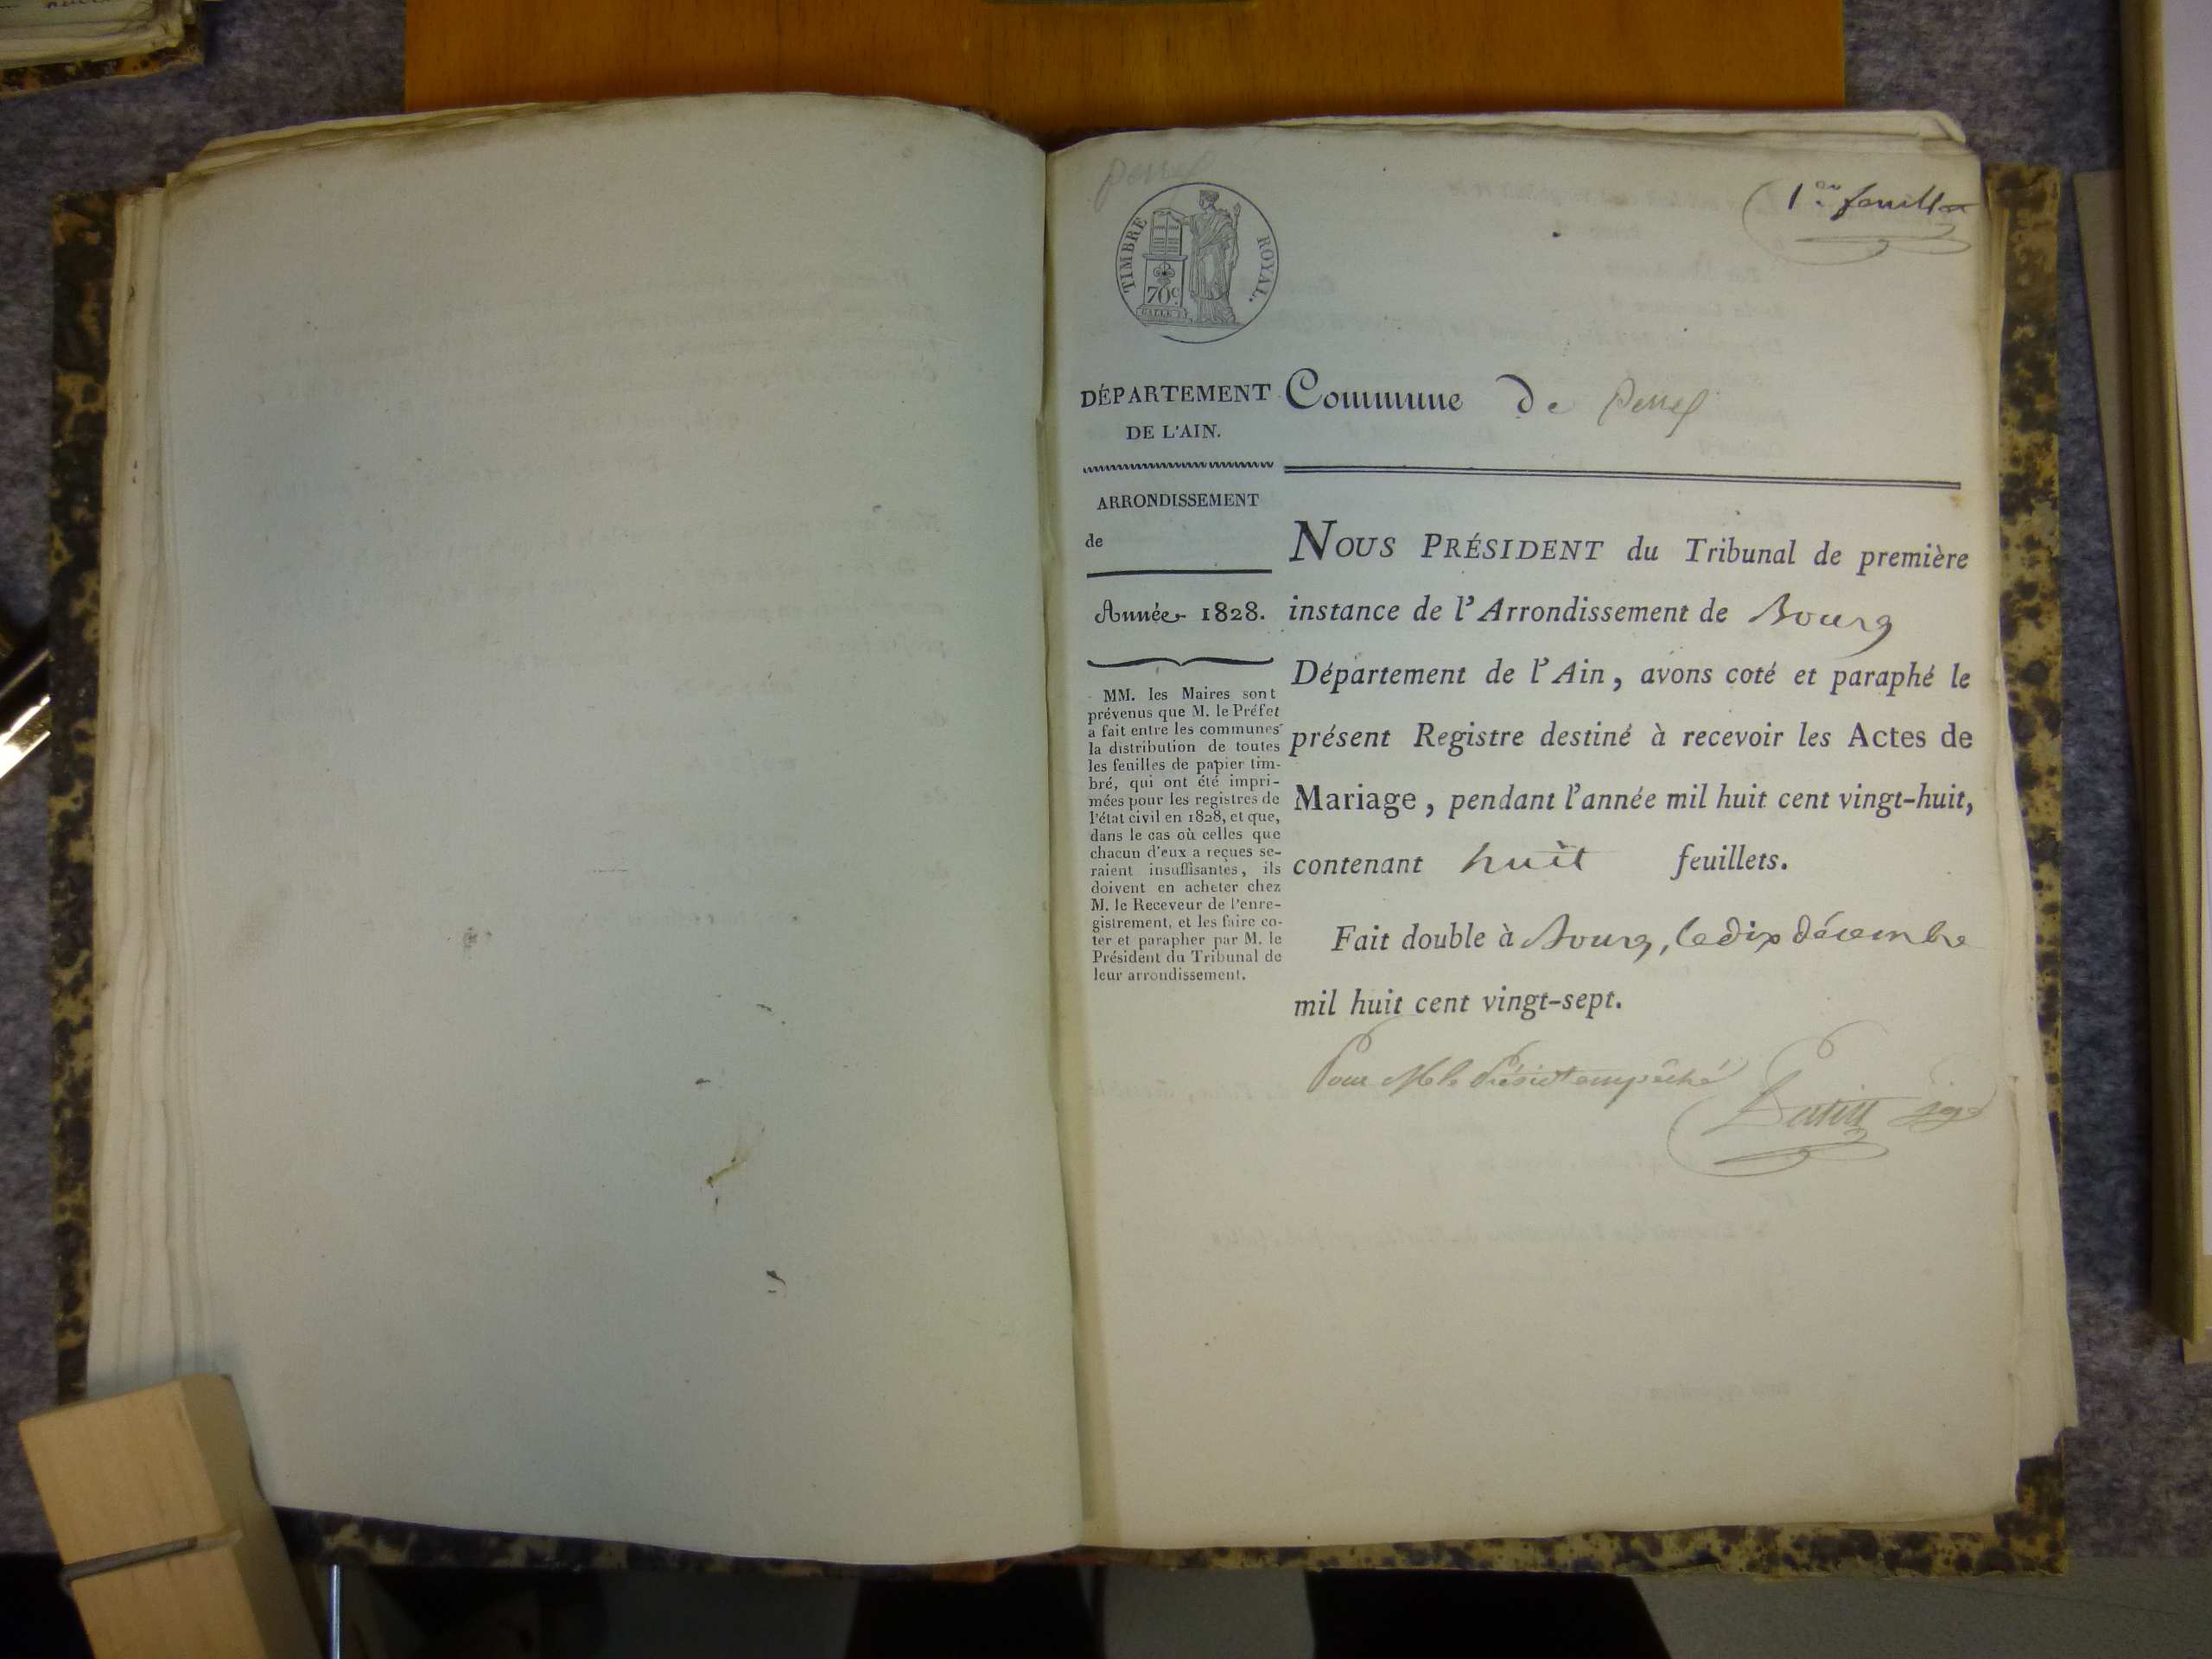 1er feuillet
TIMBRE ROYAL.
70c
DÉPARTEMENT
DE L'AIN.
Commune de
ARRONDISSEMENT
de
Année 1828.
MM. les Maires sont
prévenus que M. le Préfet
a fait entre les communes
la distribution de toutes
les feuilles de papier tim-
bré, qui ont été impri-
mées pour les registres de
l'état civil en 1828, et que,
dans le cas où celles que
chacun d'eux a reçues se-
raient insuffisantes, ils
doivent en acheter chez
M. le Receveur de l'enre-
gistrement, et les faire co-
ter et parapher par M. le
Président du Tribunal de
leur arrondissement.
NOUS PRÉSIDENT du Tribunal de première
instance de l'Arrondissement de Bourg
Département de l'Ain, avons coté et paraphé le
présent Registre destiné à recevoir les Actes de
Mariage, pendant l'année mil huit cent vingt-huit,
contenant huit feuillets.
Fait double à Bourg, le dix décembre
mil huit cent vingt-sept.
Pour M le Présidt empêché